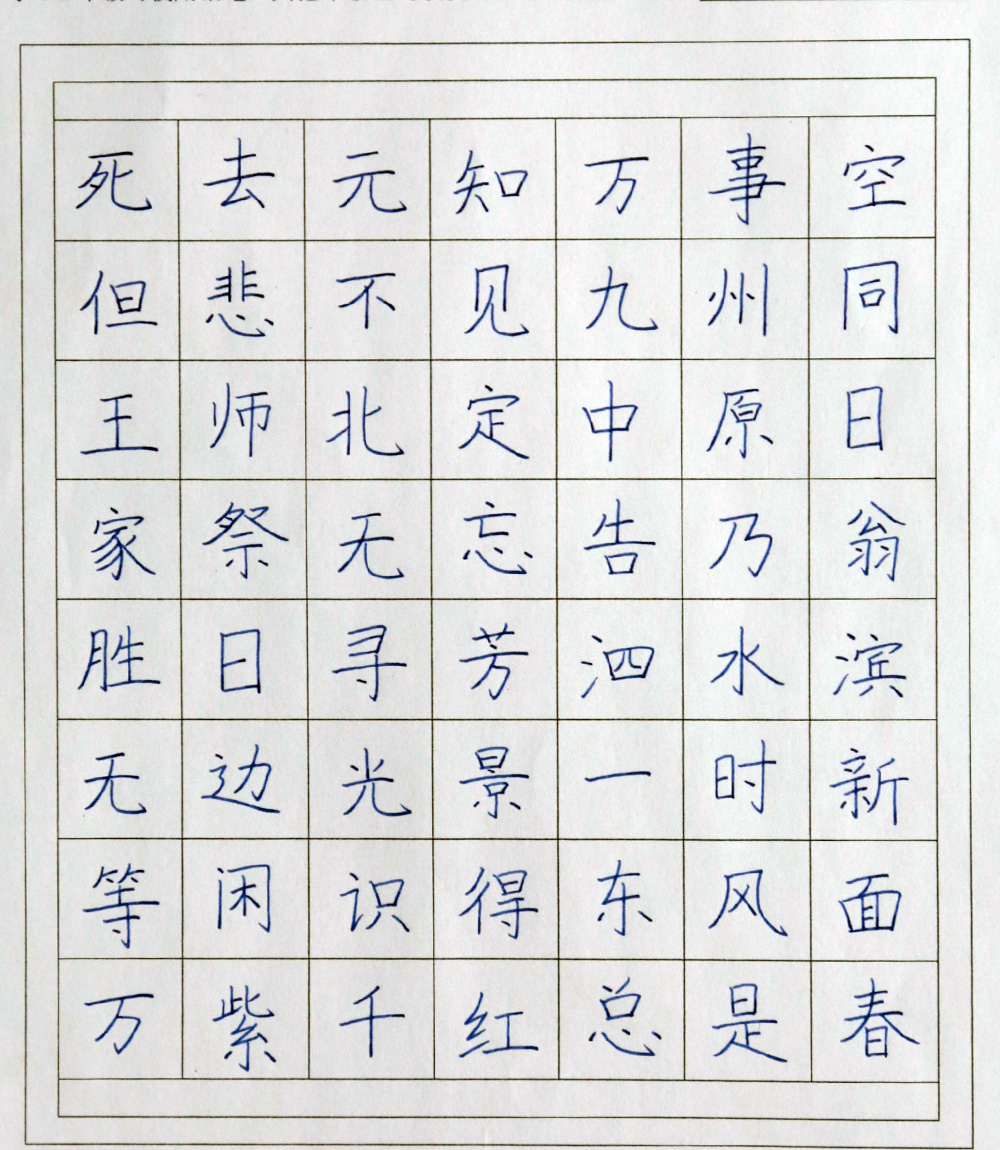 死去元知万事空
但悲不见九州同
王师北定中原日
家祭无忘告乃翁
胜日寻芳泗水滨
无边光景一时新
等闲识得东风面
万紫千红总是春